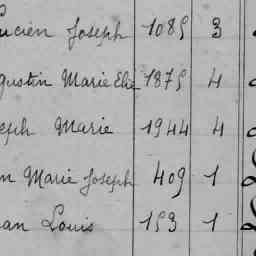 Lucien Joseph 1085 3
gustin Marie Elie 1875 4
seph Marie 1944 4
n Marie Joseph 409 1
an Louis 153 1